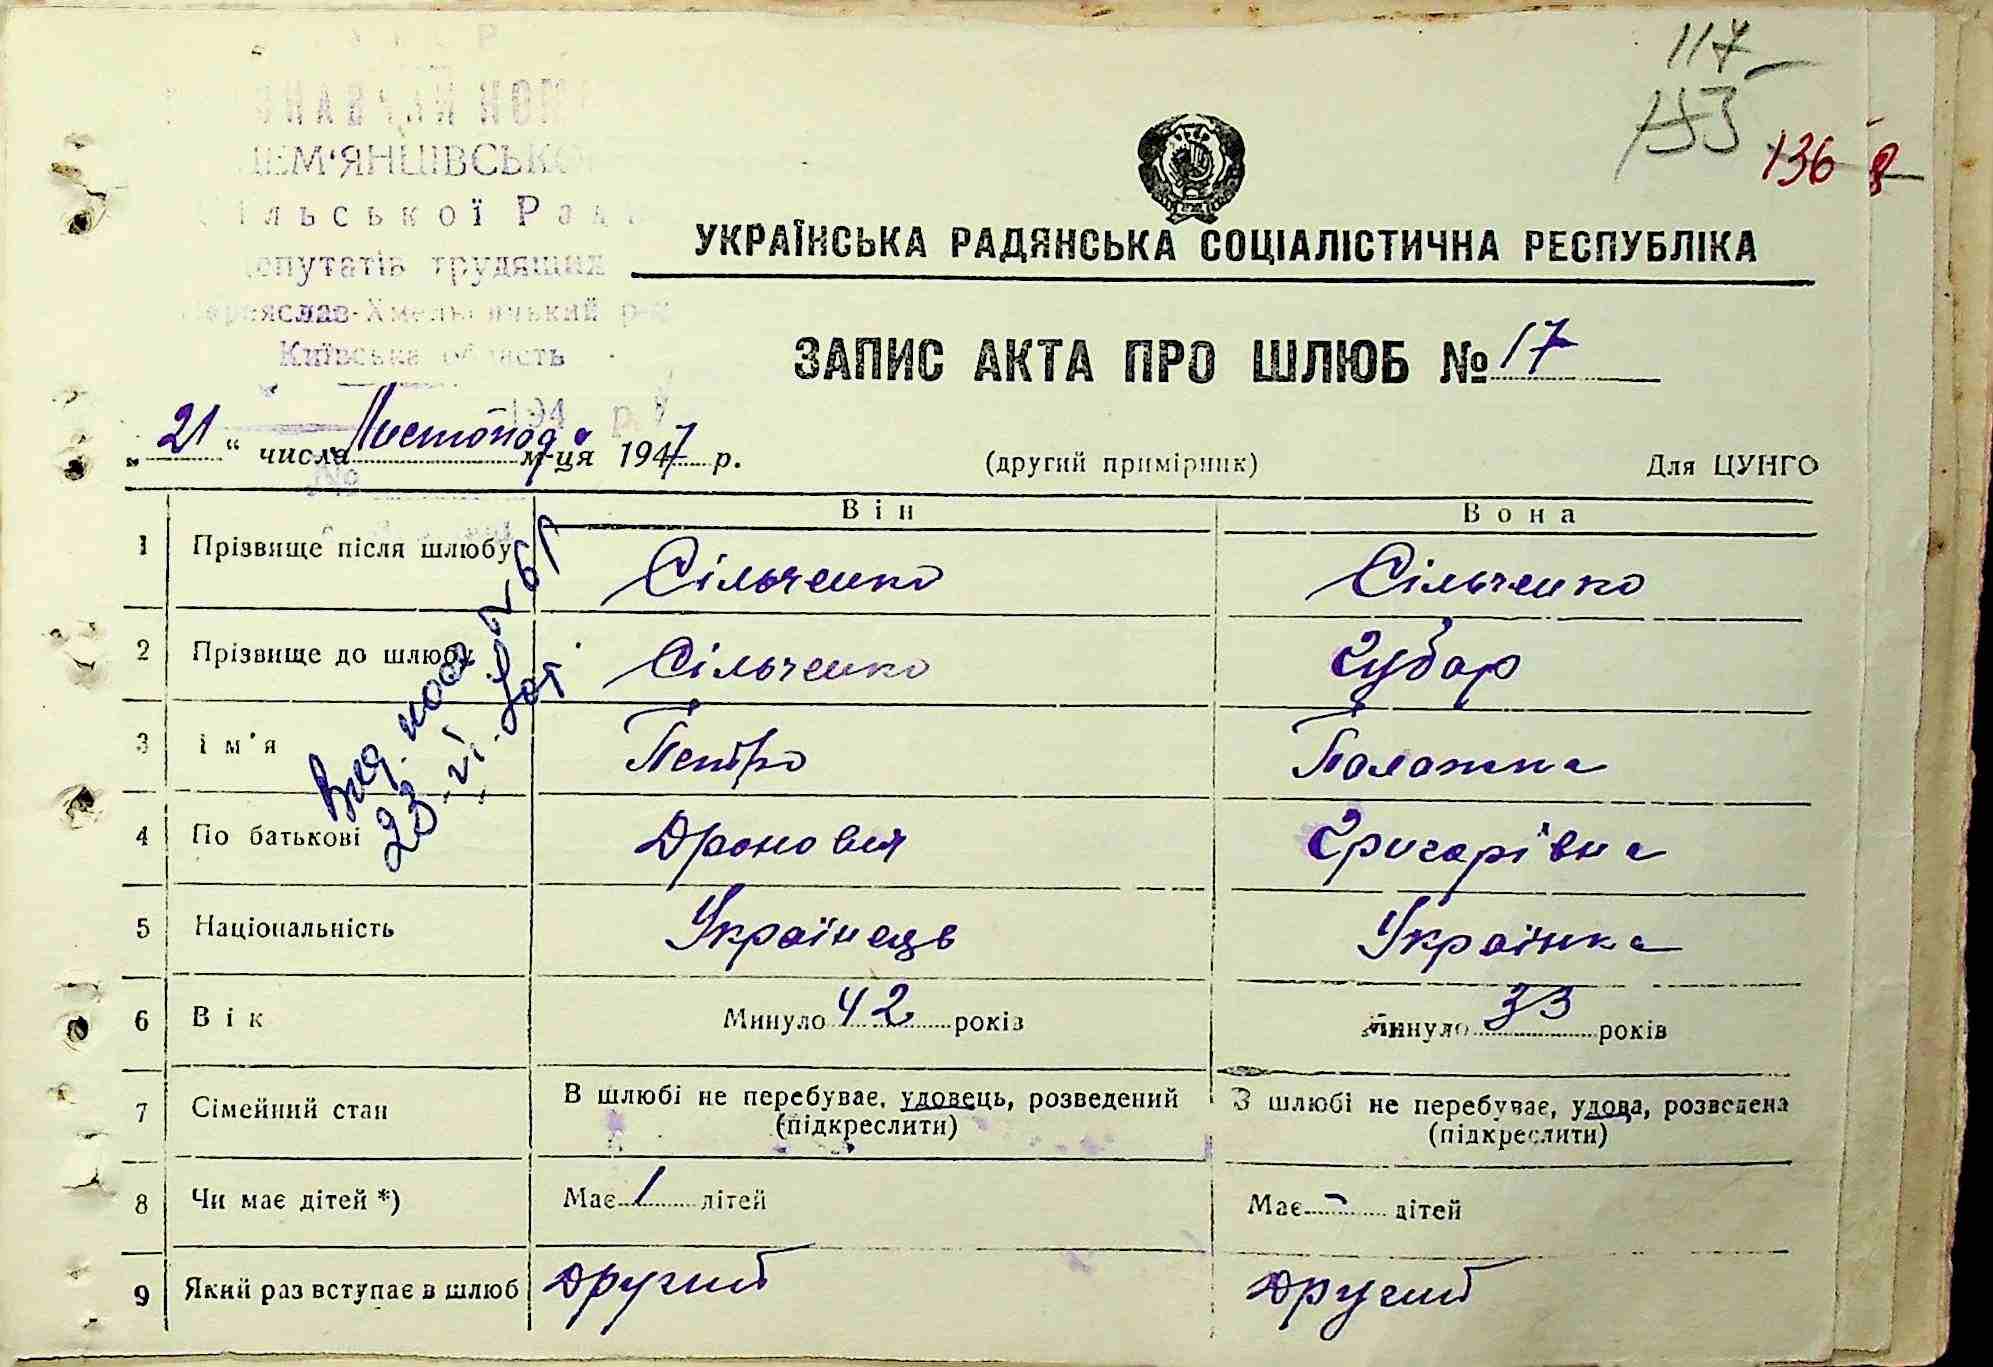 117
136
ДЕМ'ЯНЦІВСЬКО
Сільської Рад
Депутатів трудящих
Переяслав-Хмельницький р-н
Київська область
194 р.
№
УКРАЇНСЬКА РАДЯНСЬКА СОЦІАЛІСТИЧНА РЕСПУБЛІКА
ЗАПИС АКТА ПРО ШЛЮБ № 17
„21" числа Листопода м-ця 1947 р. (другий примірник) Для ЦУНГО
Він Вона
1 Прізвище після шлюбу Сільченко Сільченко
2 Прізвище до шлюбу Сільченко Губар
3 Ім'я Петро Полажка
4 По батькові Дронович Григорівна
5 Національність Українець Українка
6 Вік Минуло 42 років Минуло 33 років
7 Сімейний стан В шлюбі не перебуває, удовець, розведений (підкреслити) В шлюбі не перебуває, удова, розведена (підкреслити)
8 Чи має дітей *) Має 1 дітей Має - дітей
9 Який раз вступає в шлюб Другий Другий